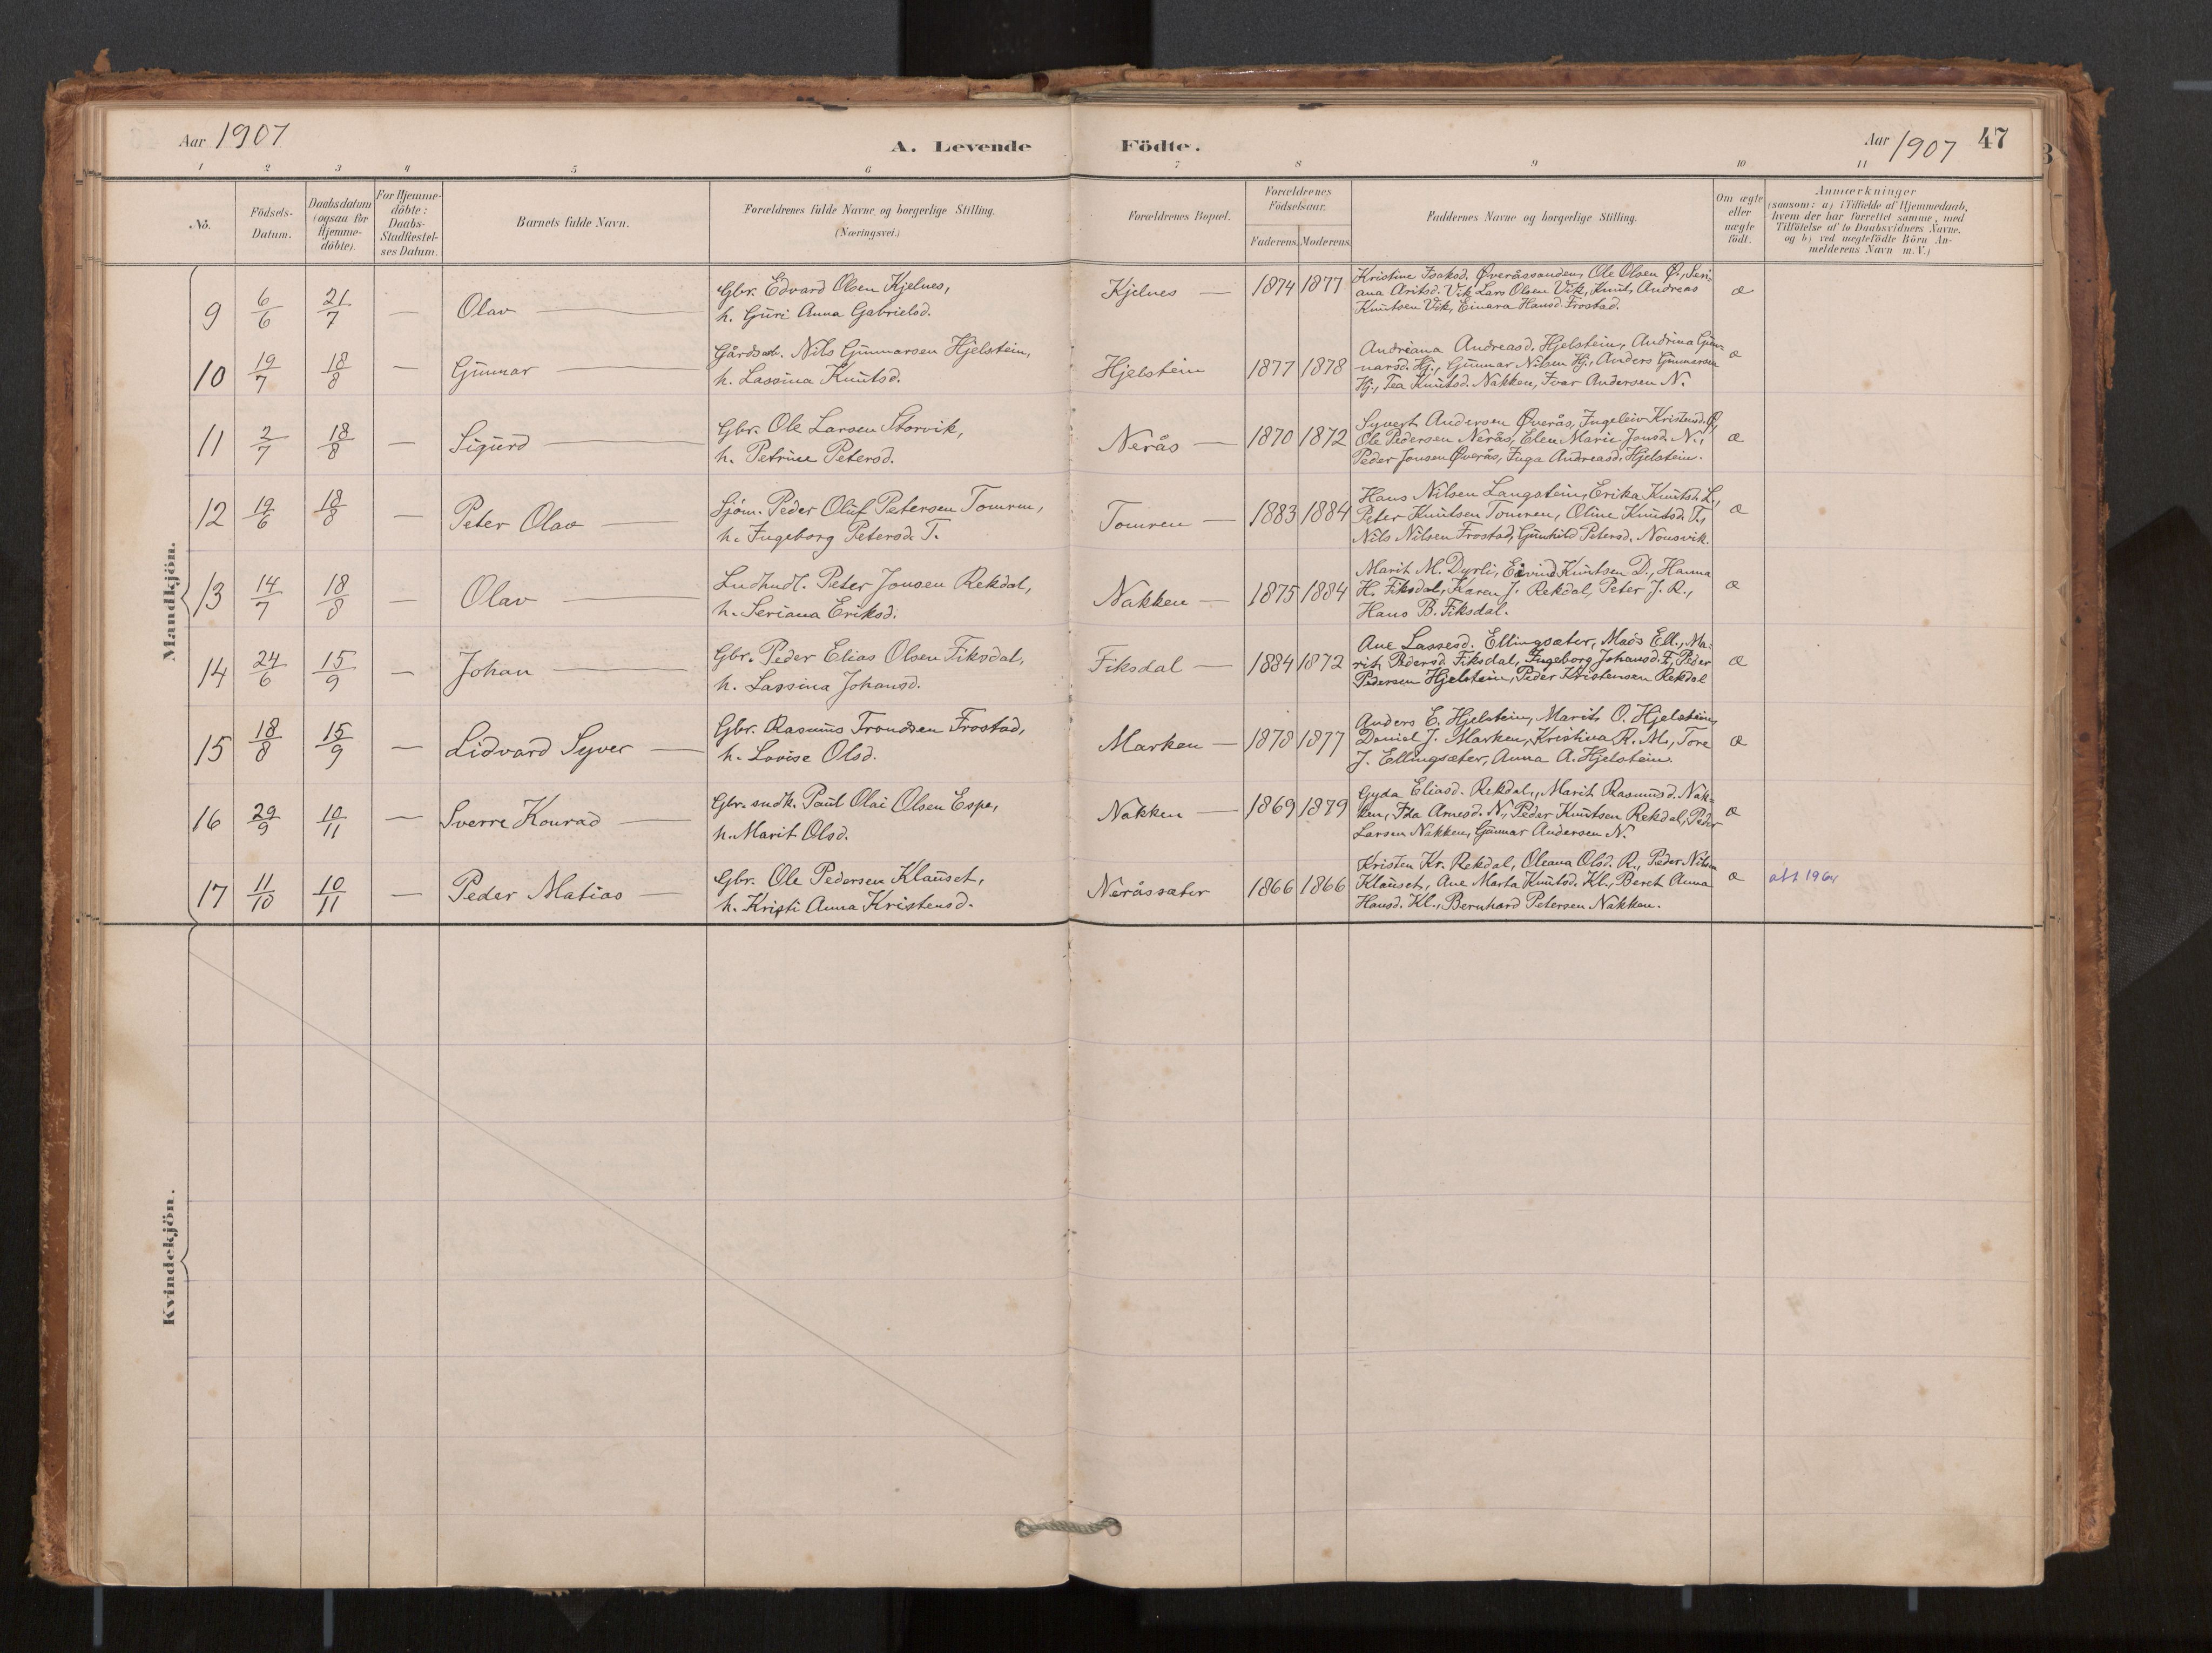 Aar 1907
A. Levende Födte.
Aar 1907 47
1 2 3 4 5 6 7 8 9 10 11
No.
Födsels-
Datum.
Daabsdatum
(ogsaa för
Hjemme-
döbte).
For Hjemme-
döbte:
Daabs-
Stadfæstel-
ses Datum.
Barnets fulde Navn.
Forældrenes fulde Navne og borgerlige Stilling.
(Næringsvei.)
Forældrenes Bopæl.
Forældrenes
Födselsaar.
Faderens. Moderens.
Faddernes Navne og borgerlige Stilling.
Om ægte
eller
uægte
födt.
Anmærkninger
(saasom: a) i Tilfælde af Hjemmedaab,
hvem der har forrettet samme, med
Tilföielse af to Daabsvidners Navne.
og b) ved uægtefödte Börn An-
melderens Navn m.V.)
Mandkjön.
9 6/6 21/7 — Olav —
Gbr. Edvard Olsen Kjelnes,
h. Guri Anna Gabrielsd.
Kjelnes — 1874 1877
Kristine Isaksd. Øveråssanden, Ole Olsen Ø., Seri-
ana Aritsd. Vik, Lars Olsen Vik, Knut Andreas
Knutsen Vik, Einara Hansd. Frostad.
æ
10 19/7 18/8 — Gunnar —
Gårdsarb. Nils Gunnarsen Hjelstein,
h. Lassina Knutsd.
Hjelstein 1877 1878
Andreana Andreasd. Hjelstein, Andrina Gun-
narsd. Hj., Gunnar Nilsen Hj., Anders Gunnarsen
Hj., Tea Knutsd. Nakken, Ivar Andersen N.
æ
11 2/7 18/8 — Sigurd —
Gbr. Ole Larsen Storvik,
h. Petrine Petersd.
Nerås — 1870 1872
Syvert Andersen Øverås, Ingeleiv Kristensd. Ø,
Ole Pedersen Nerås, Elen Marie Jonsd. N.,
Peder Jonsen Øverås, Inga Andreasd. Hjelstein.
æ
12 19/6 18/8 — Peter Olav —
Sjøm. Peder Oluf Petersen Tomren,
h. Ingeborg Petersd. T.
Tomren — 1883 1884
Hans Nilsen Langstein, Erika Knutsd. L.,
Peter Knutsen Tomren, Oline Knutsd. T.,
Nils Nilsen Frostad, Gunhild Petersd. Nonsvik.
æ
13 14/7 18/8 — Olav —
Lndhndl. Peter Jonsen Rekdal,
h. Seriana Eriksd.
Nakken — 1875 1884
Marit M. Dyrli, Eivind Knutsen D., Hanna
H. Fiksdal, Karen J. Rekdal, Peter J. R.,
Hans B. Fiksdal.
æ
14 24/6 15/9 — Johan —
Gbr. Peder Elias Olsen Fiksdal,
h. Lassina Johansd.
Fiksdal — 1884 1872
Ane Lassesd. Ellingsæter, Mads Ell., Ma-
rit Pedersd. Fiksdal, Ingeborg Johansd. F., Peder
Pedersen Hjelstein, Peder Kristensen Rekdal
æ
15 18/8 15/9 — Lidvard Syver —
Gbr. Rasmus Trondsen Frostad,
h. Lovise Olsd.
Marken — 1878 1877
Anders E. Hjelstein, Marit O. Hjelstein,
Daniel J. Marken, Kristina R. M., Tore
J. Ellingsæter, Anna A. Hjelstein.
æ
16 29/9 10/11 — Sverre Konrad —
Gbr. sndk. Paul Olai Olsen Espe,
h. Marit Olsd.
Nakken — 1869 1879
Gyda Eliasd. Rekdal, Marit Rasmusd. Nak-
ken, Ida Arnesd. N., Peder Knutsen Rekdal, Peder
Larsen Nakken, Gunnar Andersen N.
æ
17 11/10 10/11 — Peder Matias —
Gbr. Ole Pedersen Klauset,
h. Kristi Anna Kristensd.
Neråssæter 1866 1866
Kristen Kr. Rekdal, Oleana Olsd. R., Peder Nilsen
Klauset, Ane Marta Knutsd. Kl., Beret Anna
Hansd. Kl., Bernhard Petersen Nakken.
æ
att 1964
Kvindekjön.